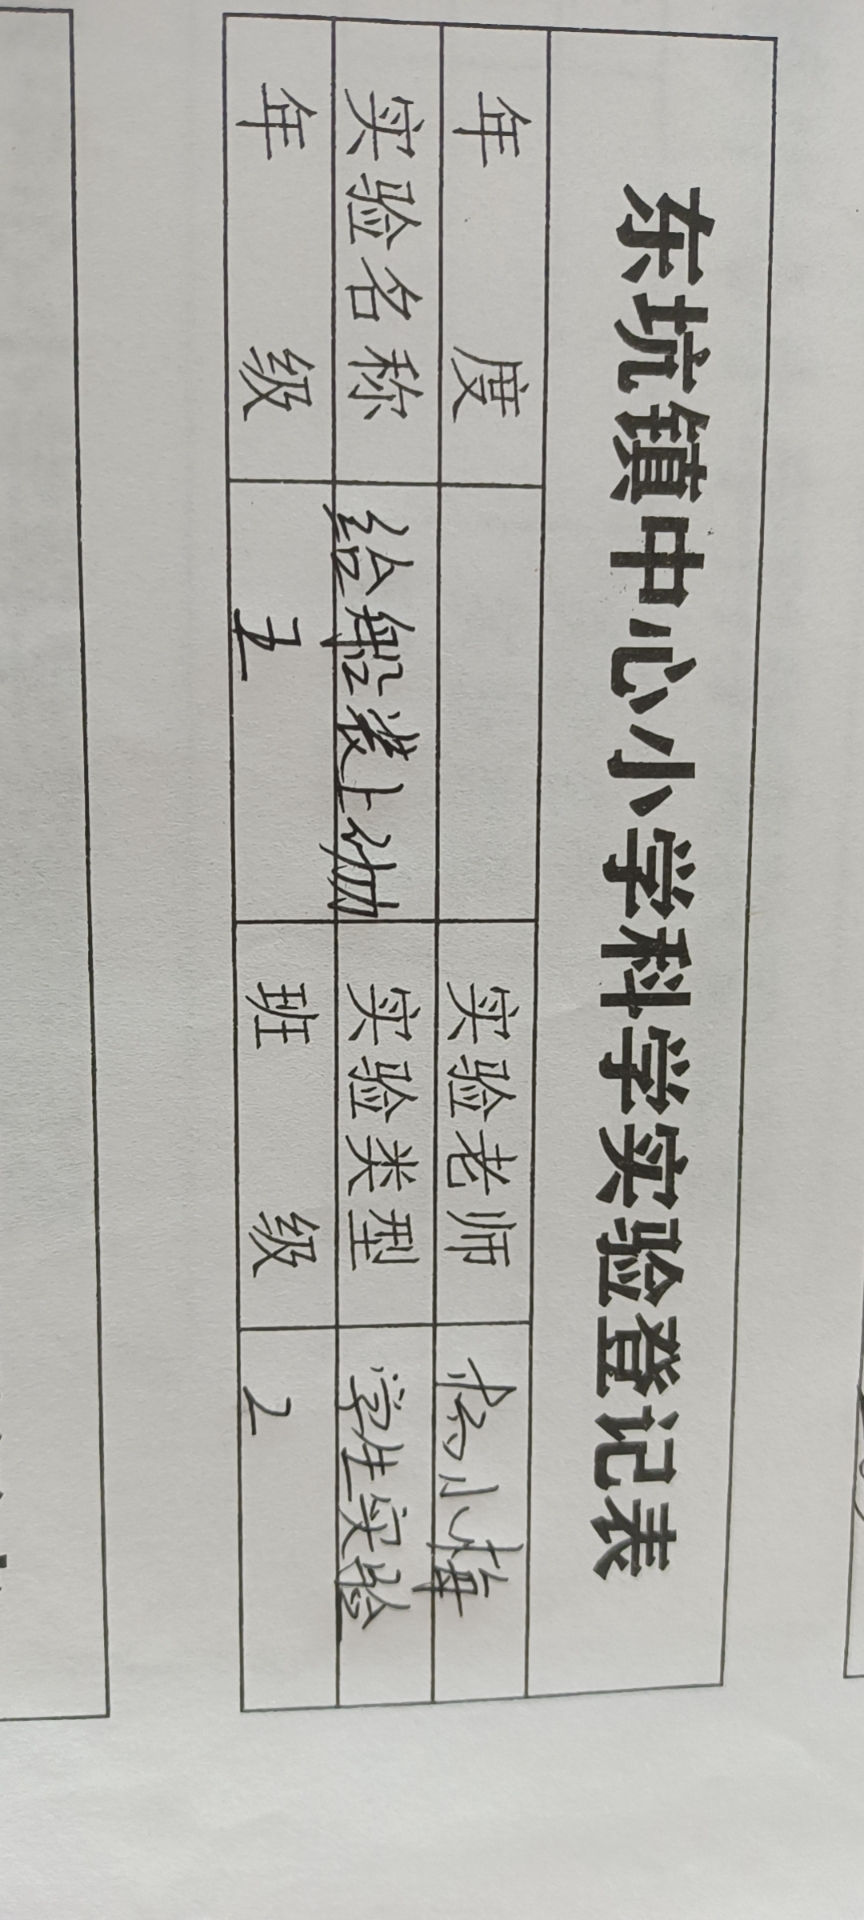 东坑镇中心小学科学实验登记表
年 度 实验老师 杨小梅
实验名称 给船装上动力 实验类型 学生实验
年 级 五 班 级 2